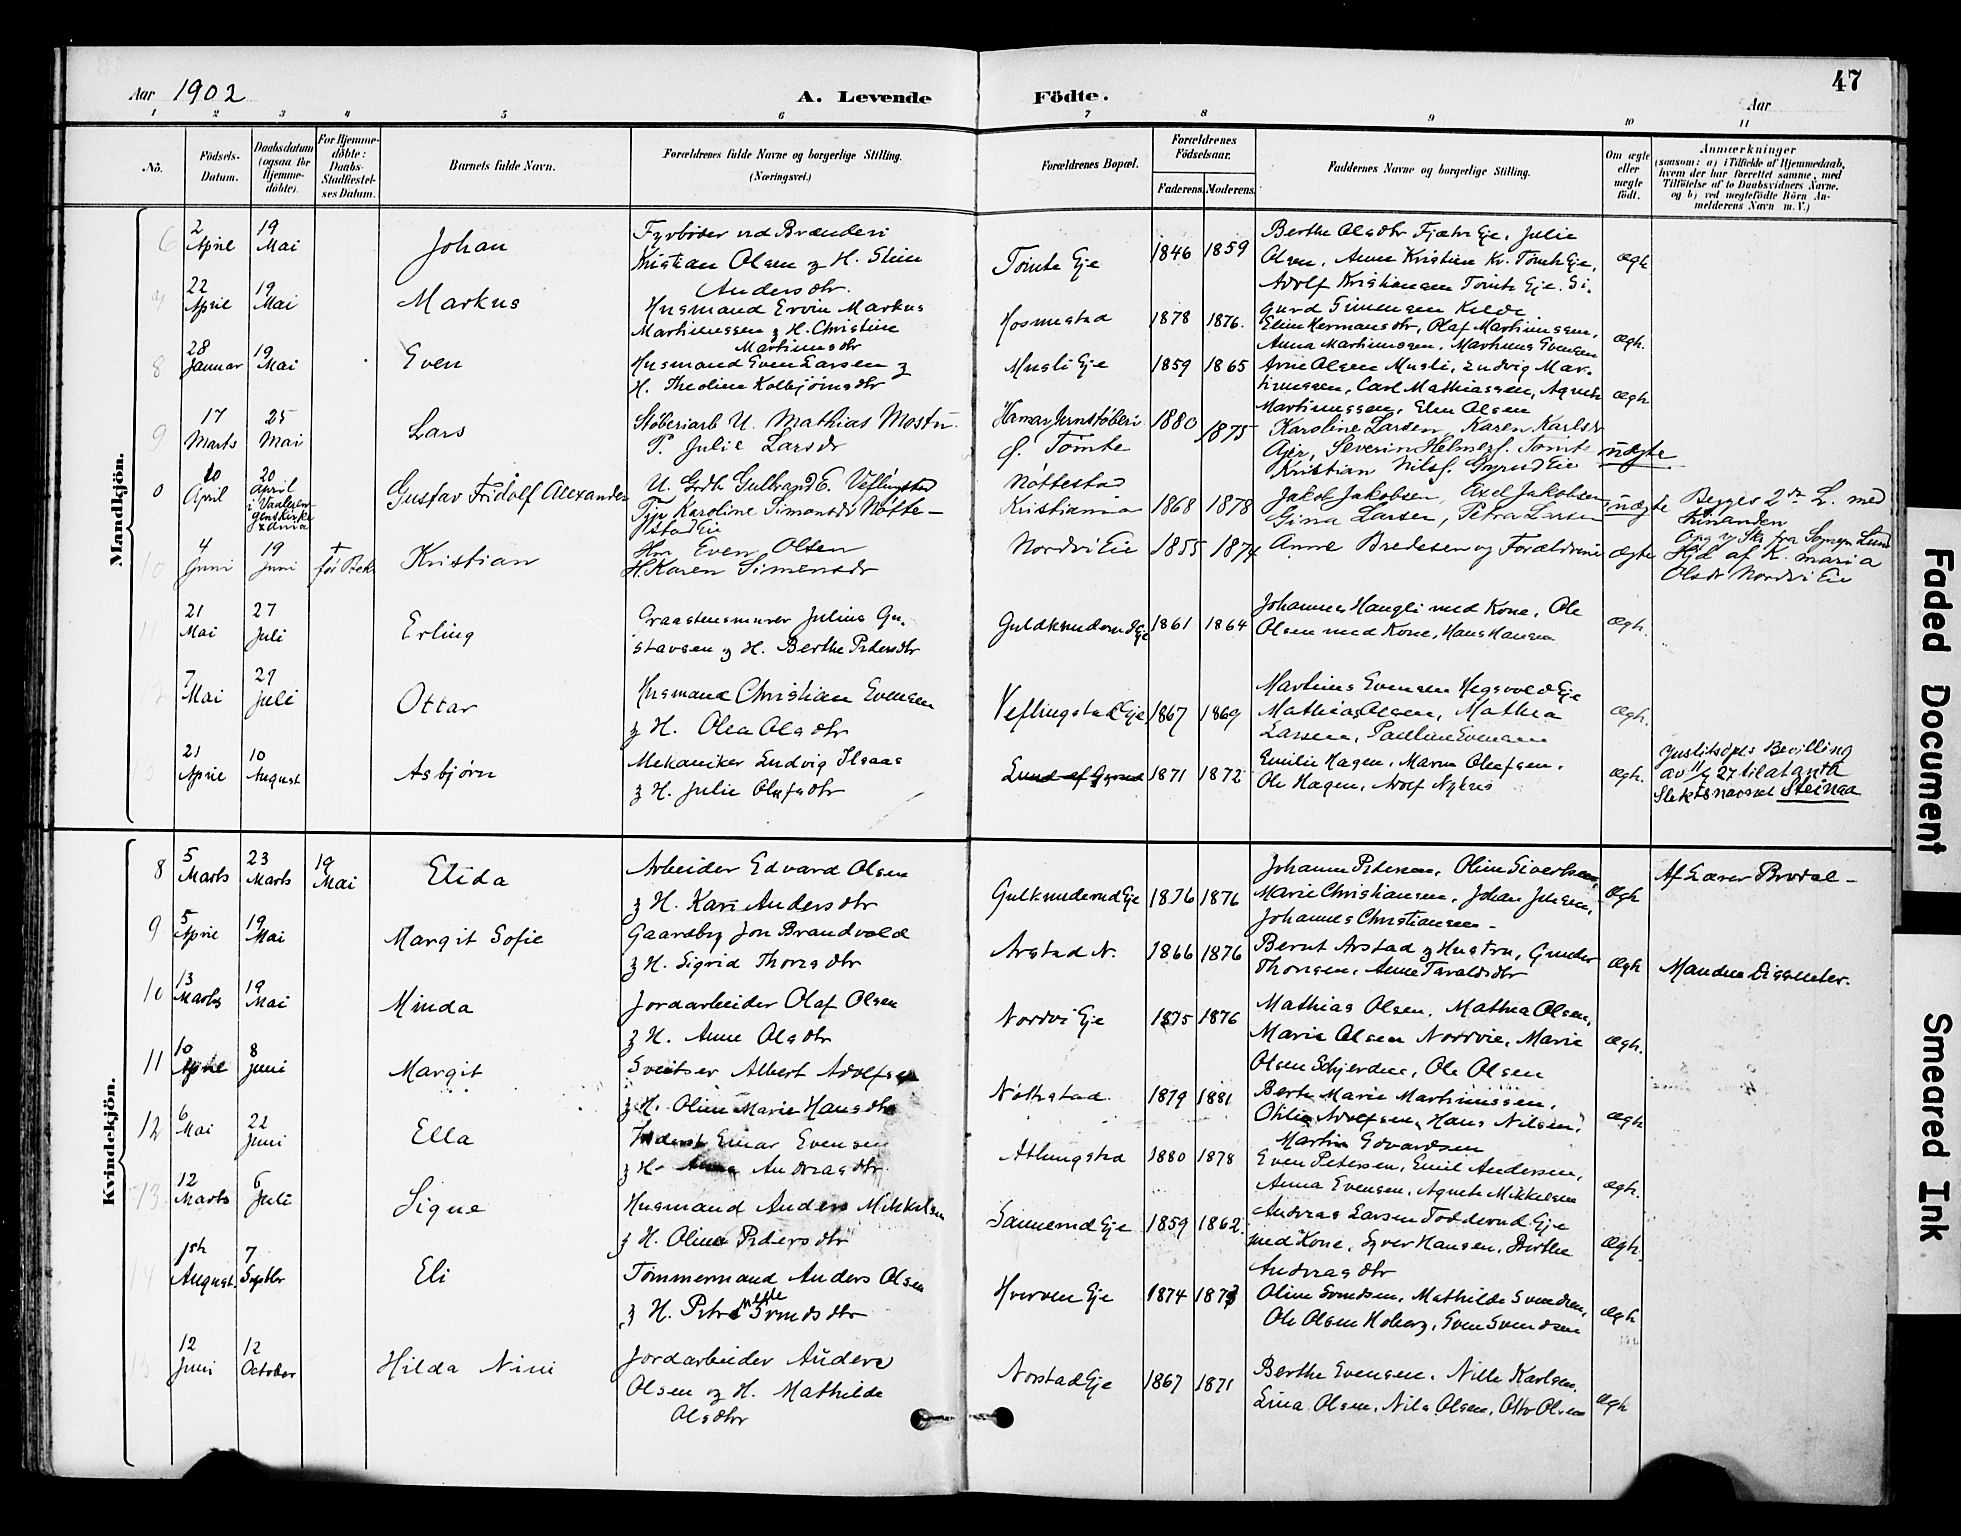 Aar 1902
A. Levende
Födte.
Aar
47
1 2 3 4 5 6 7 8 9 10 11
No.
Födsels-Datum.
Daabsdatum (ogsaa for Hjemme-döbte).
For Hjemme-döbte: Daabs-Stadfæstel-ses Datum.
Barnets fulde Navn.
Forældrenes fulde Navne og borgerlige Stilling. (Næringsvei.)
Forældrenes Bopæl.
Forældrenes Födselsaar.
Faderens. Moderens.
Faddernes Navne og borgerlige Stilling.
Om ægte eller uægte födt.
Anmærkninger
(saasom: a) i Tilfælde af Hjemmedaab,
hvem der har forrettet samme, med
Tilföielse af to Daabsvidners Navne.
og b) ved uægtefödte Börn An-
melderens Navn m. V.)
Mandkjön.
6
2 April
19 Mai
Johan
Fyrbøder ved Brænderi
Kristian Olsen og H. Stine
Andersdtr.
Tomte Eje
1846 1859
Berthe Olsdtr Fjæstr Eje, Julie
Olsen, Anne Kristine Kr. Tomte Eje,
Adolf Kristiansen Tomte Eje. Si-
gurd Simensen Kilde
ægte
22 April
19 Mai
Markus
Husmand Ervin Markus
Martinussen & H. Christine
Martinusdtr
Hosmestad
1878 1876.
Eline Hermansdtr, Olaf Martinussen,
Anna Martinussen, Markus Evensen
ægte.
8
28 Januar
19 Mai
Even
Husmand Even Larsen &
H. Theoline Kolbjörnsdtr
Musli Eje
1859 1865
Arne Olsen Musli, Ludvig Mar-
tinussen, Carl Mathiassen, Agnete
Martinussen, Elen Olsen
ægte
9
17 Marts
25 Mai
Lars
Støberiarb U. Mathias Mostu
P. Julie Larsdr
Hamar Jernstøberi
f. Tomte
1880 1875
Karoline Larsen, Karen Karlsdr
Ajer, Severin Helmers. Tomte
Kristian Nilsf. Gyrud Eie
uægte
0
10 April
20 April i Vaaleren-genskirke
Gustav Fridolf Alexander
U. Grdb Gulbrand E. Veflingstad
Tjp Karoline Simonsdr Nötte-
stad Eie
Nöttestad
Kristiania
1868 1878
Jakob Jakobsen, Axel Jakobsen
Gina Larsen, Petra Larsen
uægte
Begges 2det L. med
hinanden
10
4 Juni
19 Juni
Kristian
Hm Even Olsen
H. Karen Simensdr
Nordvi Eie
1855 1874
Anne Bredesen og Forældrene
ægte
Hjd af K. Maria
Olsdr Nordvi Eie
11
21 Mai
27 Juli
Erling
Graastensmurer Julius Gu-
stavsen & H. Berthe Pedersdtr
Guldknuderud Eje
1861 1864
Johannes Haugli med Kone, Ole
Olsen med Kone, Hans Hansen
ægte.
12
7 Mai
27 Juli
Ottar
Husmand Christian Evensen
& H. Olea Olsdtr
Veflingstad Eje
1867 1869
Martinus Evensen Hegsvold Eje
Mathias Olsen, Mathea
Larsen, Pauline Evensen
ægte.
21 April
10 August
Asbjørn
Mekaniker Ludvig Isaas
& H. Julie Olufsdtr
Lund af Gyrud
1871 1872
Emilie Hagen, Maren Olufsen,
Ole Hagen, Adolf Nyhus
ægte.
Justitsdpts Bevilling
av 11/6 27 til at anta
Slektsnavnet Steinaa
Kvindekjön.
8
5 Marts
23 Marts
19 Mai
Elida
Arbeider Edvard Olsen
& H. Kari Andersdtr
Gulknuderud Eje
1876 1876
Johanne Petersen, Oline Sivertsen,
Marie Christiansen, Johan Jensen,
Johannes Christiansen-
ægte
Af Lærer Brodal-
9
5 April
19 Mai
Margit Sofie
Gaardbr Jon Brandvold
& H. Sigrid Thorsdtr
Arstad N.
1866 1876
Bernt Arstad & Hustru, Gunder
Thorsen, Anne Taraldsdtr
ægte
Manden Dissenter.
10
13 Marts
19 Mai
Minda
Jordarbeider Olaf Olsen
& H. Anne Olsdtr
Nordvi Eje
1875 1876
Mathias Olsen, Mathea Olsen,
Marie Olsen Nordvie, Marie
Olsen Schjerden, Ole Olsen
ægte.
11
10 April
8 Juni
Margit
Sveitser Albert Adolfsen
& H. Oline Marie Hansdtr
Nøttestad
1879 1881
Berthe Marie Martinussen,
Othilie Adolfsen, Hans Nilsen,
Martin Edvardsen
ægte
12
6 Mai
22 Juni
Ella
Einar Evensen
& H. Anna Andreasdtr.
Atlungstad
1880 1878
Even Petersen, Emil Andersen,
Anna Evensen, Agnete Mikkelsen
ægte.
13
12 Marts
6 Juli
Signe
Husmand Anders Mikkelsen
& H. Oline Pedersdtr
Sannerud Eje
1859 1862.
Andreas Larsen Todderud Eje
med Kone, Syver Hansen, Berthe
Andreasdtr
ægte.
14
1ste August
7 Septbr
Eli
Tømmermand Anders Olsen
& H. Petra Svendsdtr
Hverven Eje
1874 1873
Oline Svendsen, Mathilde Svendsen,
Ole Olsen Hoberg, Sven Svendsen
ægte
12 Juni
12 October
Hilda Nini
Jordarbeider Anders
Olsen og H. Mathilde
Olsdtr
Norstad Eje
1867 1871
Berthe Evensen, Nille Karlsen,
Lina Olsen, Nils Olsen, Otto Olsen
ægte
Faded Document
Smeared Ink